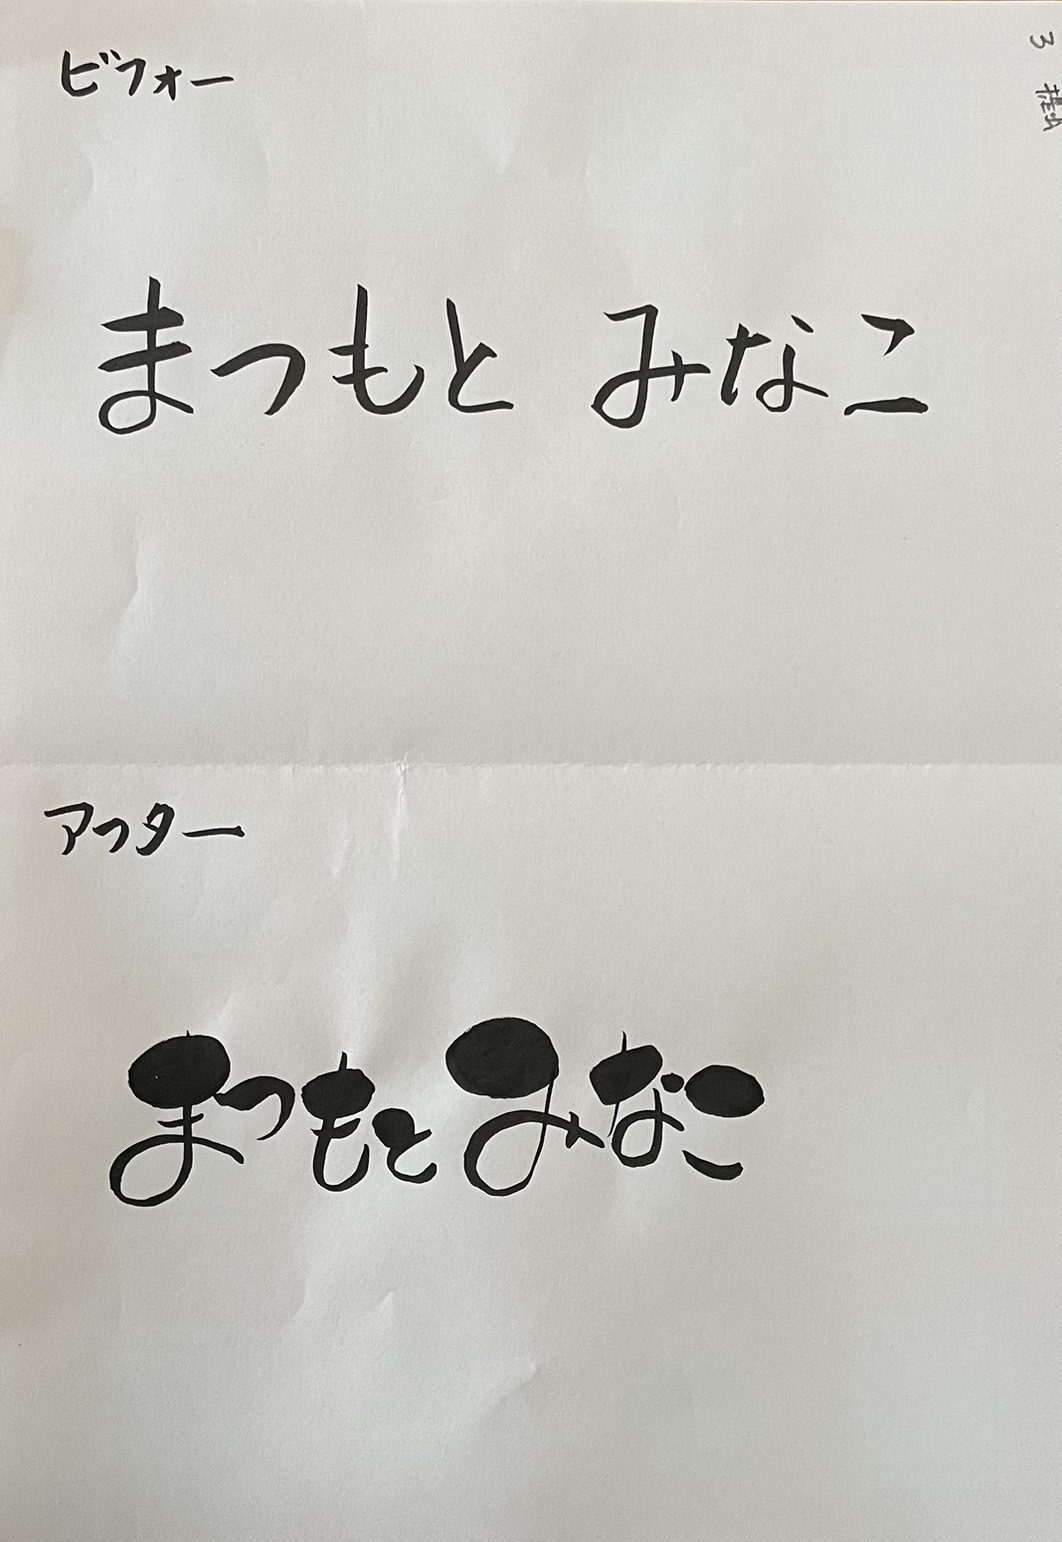 ビフォー
3 提出
まつもと みなこ
アフター
まつもとみなこ